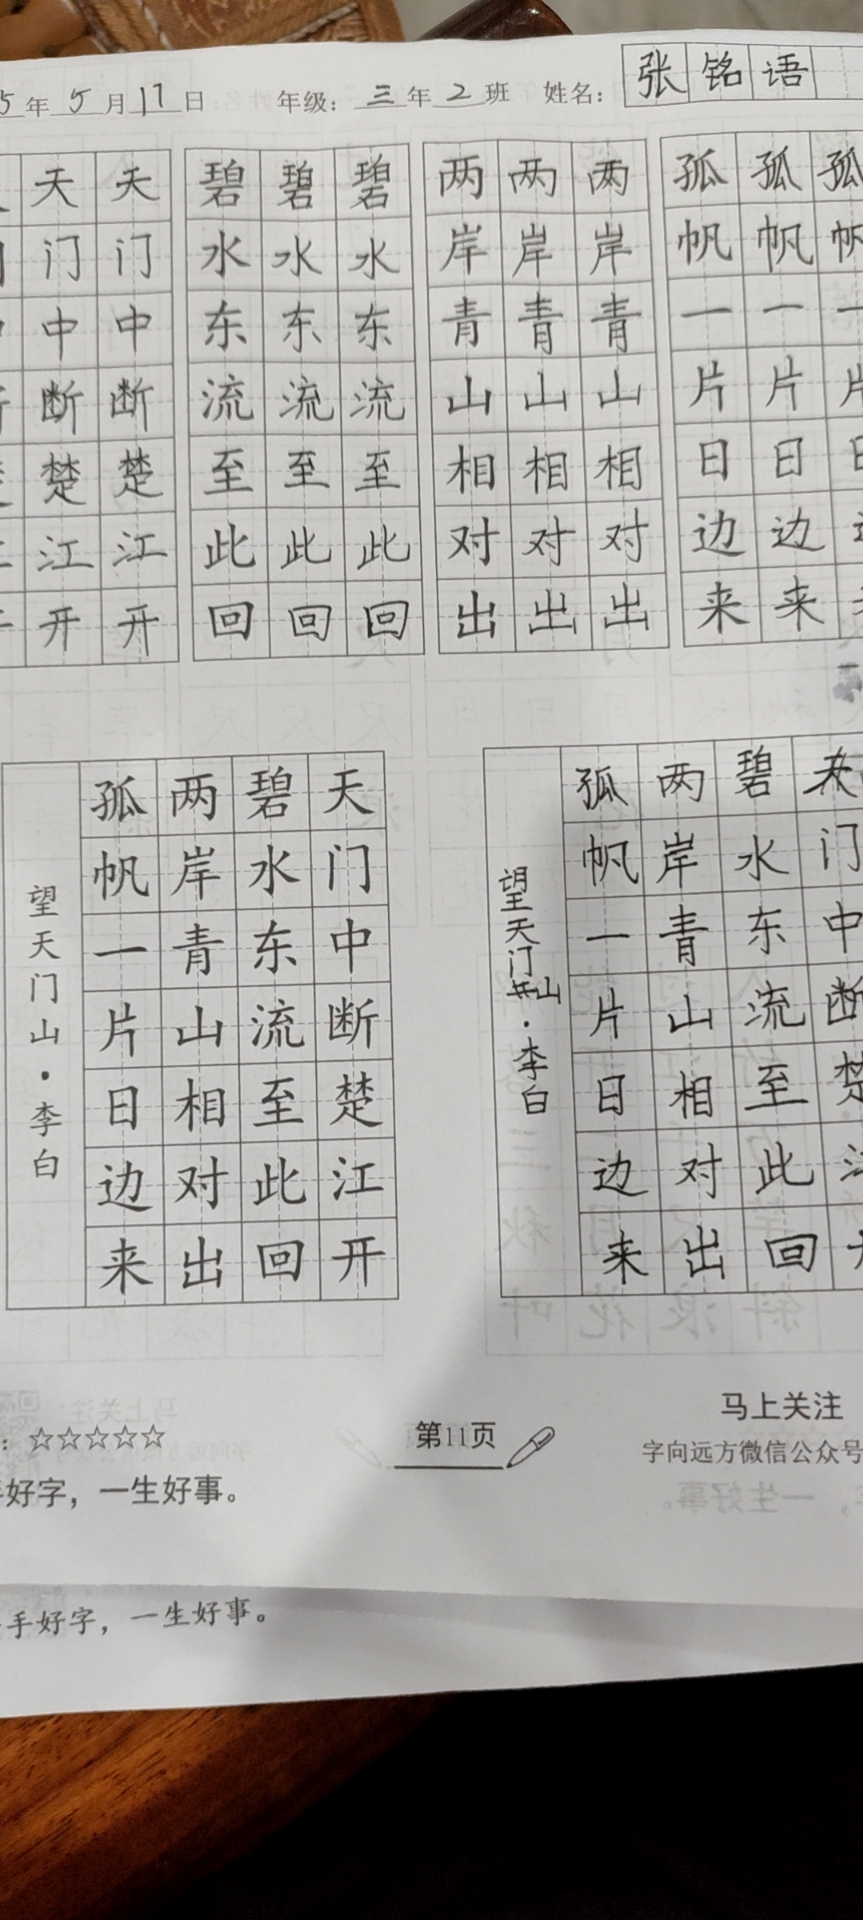 5年5月17日 年级：三年2班 姓名：张铭语
天天 碧碧碧 两两两 孤孤孤
门门 水水水 岸岸岸 帆帆帆
中中 东东东 青青青 一一一
断断 流流流 山山山 片片片
楚楚 至至至 相相相 日日日
江江 此此此 对对对 边边
开开 回回回 出出出 来来
天门中断楚江开
碧水东流至此回
两岸青山相对出
孤帆一片日边来
望天门山·李白
天门中断楚江
碧水东流至此回
两岸青山相对出
孤帆一片日边来
望天门山·李白
：☆☆☆☆☆
第11页
马上关注
字向远方微信公众号
手好字，一生好事。
手好字，一生好事。